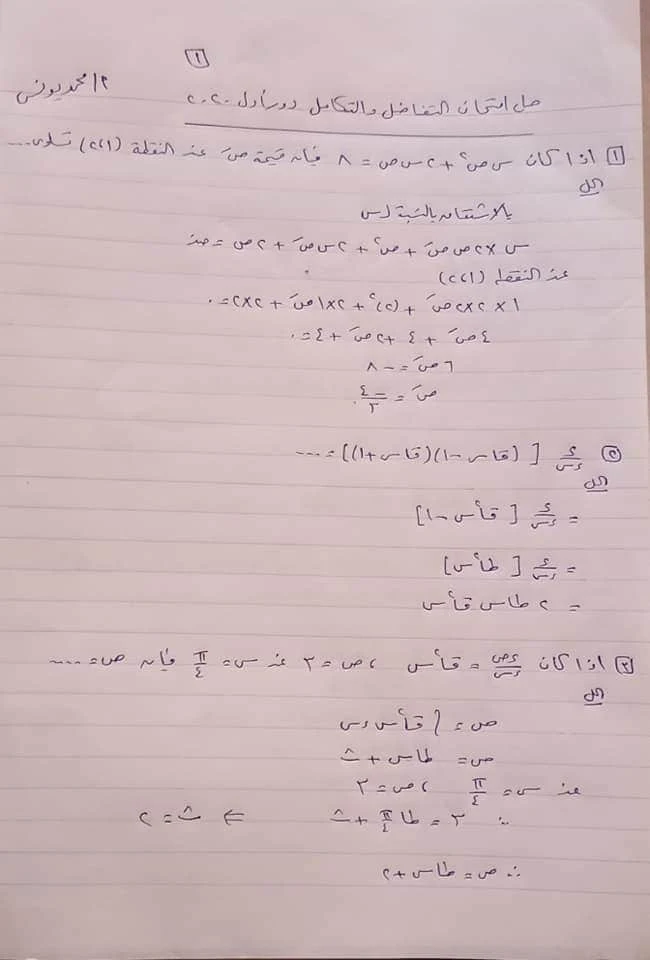 ١
حل امتحان التفاضل والتكامل دور أول ٢٠٢٠
أ/ محمد يونس
١ اذا كان س ص٢ + ٢ س ص = ٨ فإن قيمة صَ عند النقطة (١،٢) تساوى ....
الحل
بالاشتقاق بالنسبة لـ س
س × ٢ ص صَ + ص٢ + ٢ س صَ + ٢ ص = صفر
عند النقطة (١،٢)
١ × ٢ × ٢ صَ + (٢)٢ + ٢ × ١ صَ + ٢ × ٢ = ٠
٤ صَ + ٤ + ٢ صَ + ٤ = ٠
٦ صَ = - ٨
صَ = -٤/٣
٢ ء/ءس [ (قاس - ١)(قاس + ١) ] = ....
الحل
= ء/ءس [ قا٢س - ١ ]
= ء/ءس [ طا٢س ]
= ٢ طاس قا٢س
٣ اذا كان ءص/ءس = قا٢س ، ص = ٣ عند س = π/٤ فإن ص = ....
الحل
ص = ∫ قا٢س ءس
ص = طاس + ث
عند س = π/٤ ، ص = ٣
∴ ٣ = طا π/٤ + ث ⇐ ث = ٢
∴ ص = طاس + ٢